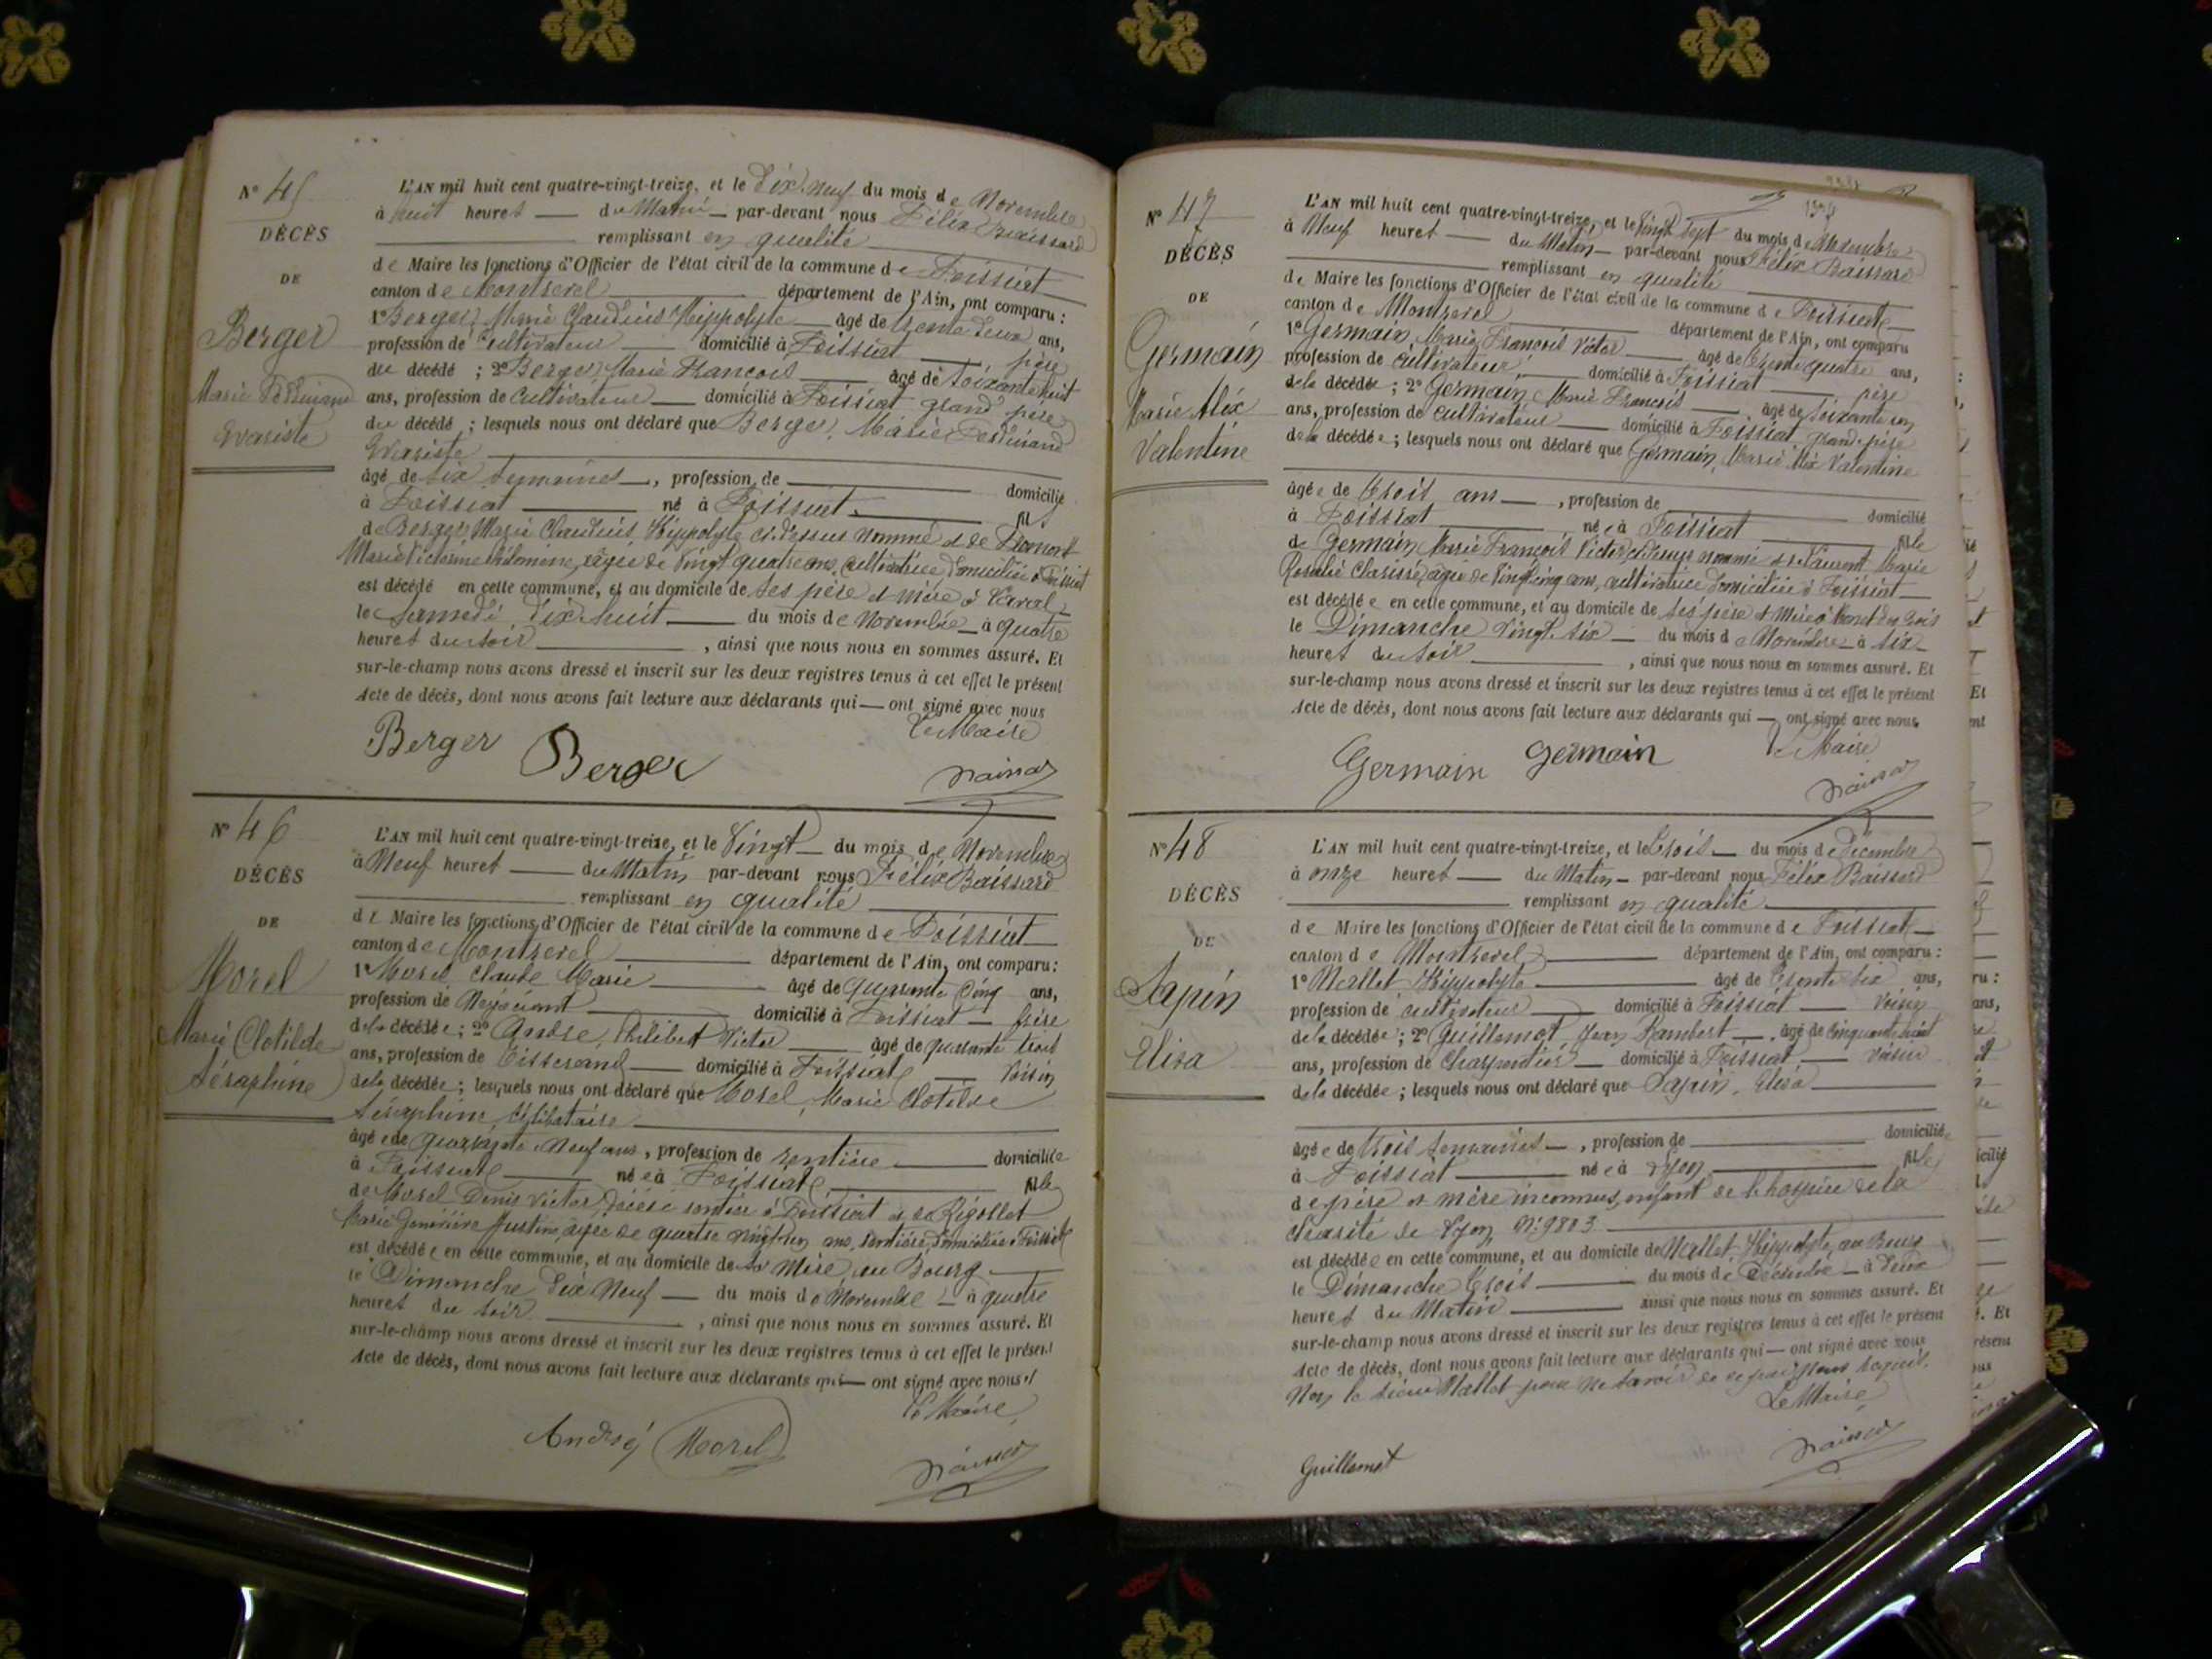 N° 45
DÉCÈS
DE
Berger
Marie Ferdinand
Evariste
L'AN mil huit cent quatre-vingt-treize, et le Dix-neuf du mois de Novembre
à huit heures du Matin par-devant nous Félix Baissard
remplissant en qualité
de Maire les fonctions d'Officier de l'état civil de la commune de Foissiat
canton de Montrevel département de l'Ain, ont comparu :
1° Berger, Marie Claudius Hippolyte âgé de trente deux ans,
profession de Cultivateur domicilié à Foissiat père
du décédé ; 2° Berger Marie François âgé de soixante huit
ans, profession de Cultivateur domicilié à Foissiat grand père
du décédé ; lesquels nous ont déclaré que Berger, Marie Ferdinand
Evariste
âgé de six semaines, profession de domicilié
à Foissiat né à Foissiat fils
de Berger Marie Claudius, Hippolyte ci-dessus nommé et de
Marie Victorine Philomène, âgée de vingt quatre ans, cultivatrice domiciliée à Foissiat
est décédé en cette commune, et au domicile de ses père et mère à
le Samedi dix-huit du mois de Novembre à quatre
heures du soir , ainsi que nous nous en sommes assuré. Et
sur-le-champ nous avons dressé et inscrit sur les deux registres tenus à cet effet le présent
Acte de décès, dont nous avons fait lecture aux déclarants qui — ont signé avec nous
Le Maire
Berger Berger Baissard
N° 46
DÉCÈS
DE
Morel
Marie Clotilde
Séraphine
L'AN mil huit cent quatre-vingt-treize, et le Vingt du mois de Novembre
à Neuf heures du Matin par-devant nous Félix Baissard
remplissant en qualité
de Maire les fonctions d'Officier de l'état civil de la commune de Foissiat
canton de Montrevel département de l'Ain, ont comparu :
1° Morel Claude Marie âgé de quarante cinq ans,
profession de Négociant domicilié à Foissiat frère
de la décédée ; 2° André, Philibert Victor âgé de quarante trois
ans, profession de Tisserand domicilié à Foissiat Voisin
de la décédée ; lesquels nous ont déclaré que Morel, Marie Clotilde
Séraphine, célibataire
âgée de quarante Neuf ans, profession de rentière domiciliée
à Foissiat née à Foissiat fille
de Morel Denis Victor, décédé rentier à Foissiat et de Rigollet
Marie Geneviève Justine, âgée de quatre vingt-un ans, rentière, domiciliée à Foissiat
est décédée en cette commune, et au domicile de sa Mère, au Bourg
le Dimanche Dix Neuf du mois de Novembre à quatre
heures du soir , ainsi que nous nous en sommes assuré. Et
sur-le-champ nous avons dressé et inscrit sur les deux registres tenus à cet effet le présent
Acte de décès, dont nous avons fait lecture aux déclarants qui — ont signé avec nous
Le Maire
André Morel Baissard
N° 47
DÉCÈS
DE
Germain
Marie Alix
Valentine
L'AN mil huit cent quatre-vingt-treize, et le Vingt Sept du mois de Novembre
à Neuf heures du Matin par-devant nous Félix Baissard
remplissant en qualité
de Maire les fonctions d'Officier de l'état civil de la commune de Foissiat
canton de Montrevel département de l'Ain, ont comparu
1° Germain, Marie François Victor âgé de trente quatre ans,
profession de cultivateur domicilié à Foissiat père
de la décédée ; 2° Germain, Marie François âgé de soixante un
ans, profession de cultivateur domicilié à Foissiat grand-père
de la décédée ; lesquels nous ont déclaré que Germain, Marie Alix Valentine
âgée de trois ans , profession de domicilié
à Foissiat née à Foissiat fille
de Germain Marie François Victor, ci-dessus nommé et de Marie
Rosalie Clarisse, âgée de Vingt cinq ans, cultivatrice domiciliée à Foissiat
est décédée en cette commune, et au domicile de ses père et Mère à
le Dimanche Vingt-six du mois de Novembre à six
heures du soir , ainsi que nous nous en sommes assuré. Et
sur-le-champ nous avons dressé et inscrit sur les deux registres tenus à cet effet le présent
Acte de décès, dont nous avons fait lecture aux déclarants qui — ont signé avec nous
Le Maire
Germain Germain Baissard
N° 48
DÉCÈS
DE
Sapin
Elisa
L'AN mil huit cent quatre-vingt-treize, et le trois du mois de décembre
à onze heures du Matin par-devant nous Félix Baissard
remplissant en qualité
de Maire les fonctions d'Officier de l'état civil de la commune de Foissiat
canton de Montrevel département de l'Ain, ont comparu :
1° Mallet Hippolyte âgé de trente six ans,
profession de cultivateur domicilié à Foissiat Voisin
de la décédée ; 2° Guillemot Jean Rambert , âgé de cinquante huit
ans, profession de Charpentier domicilié à Foissiat voisin
de la décédée ; lesquels nous ont déclaré que Sapin, Elisa
âgée de trois semaines , profession de domiciliée
à Foissiat née à Lyon fille
de père et mère inconnus, enfant de l'hospice de la
Charité de Lyon N° 9803
est décédée en cette commune, et au domicile de Mallet, Hippolyte, au Bourg
le Dimanche trois du mois de Décembre à deux
heures du Matin ainsi que nous nous en sommes assuré. Et
sur-le-champ nous avons dressé et inscrit sur les deux registres tenus à cet effet le présent
Acte de décès, dont nous avons fait lecture aux déclarants qui — ont signé avec nous
Non le sieur Mallet pour ne savoir de ce requis.
Le Maire
Guillemot Baissard